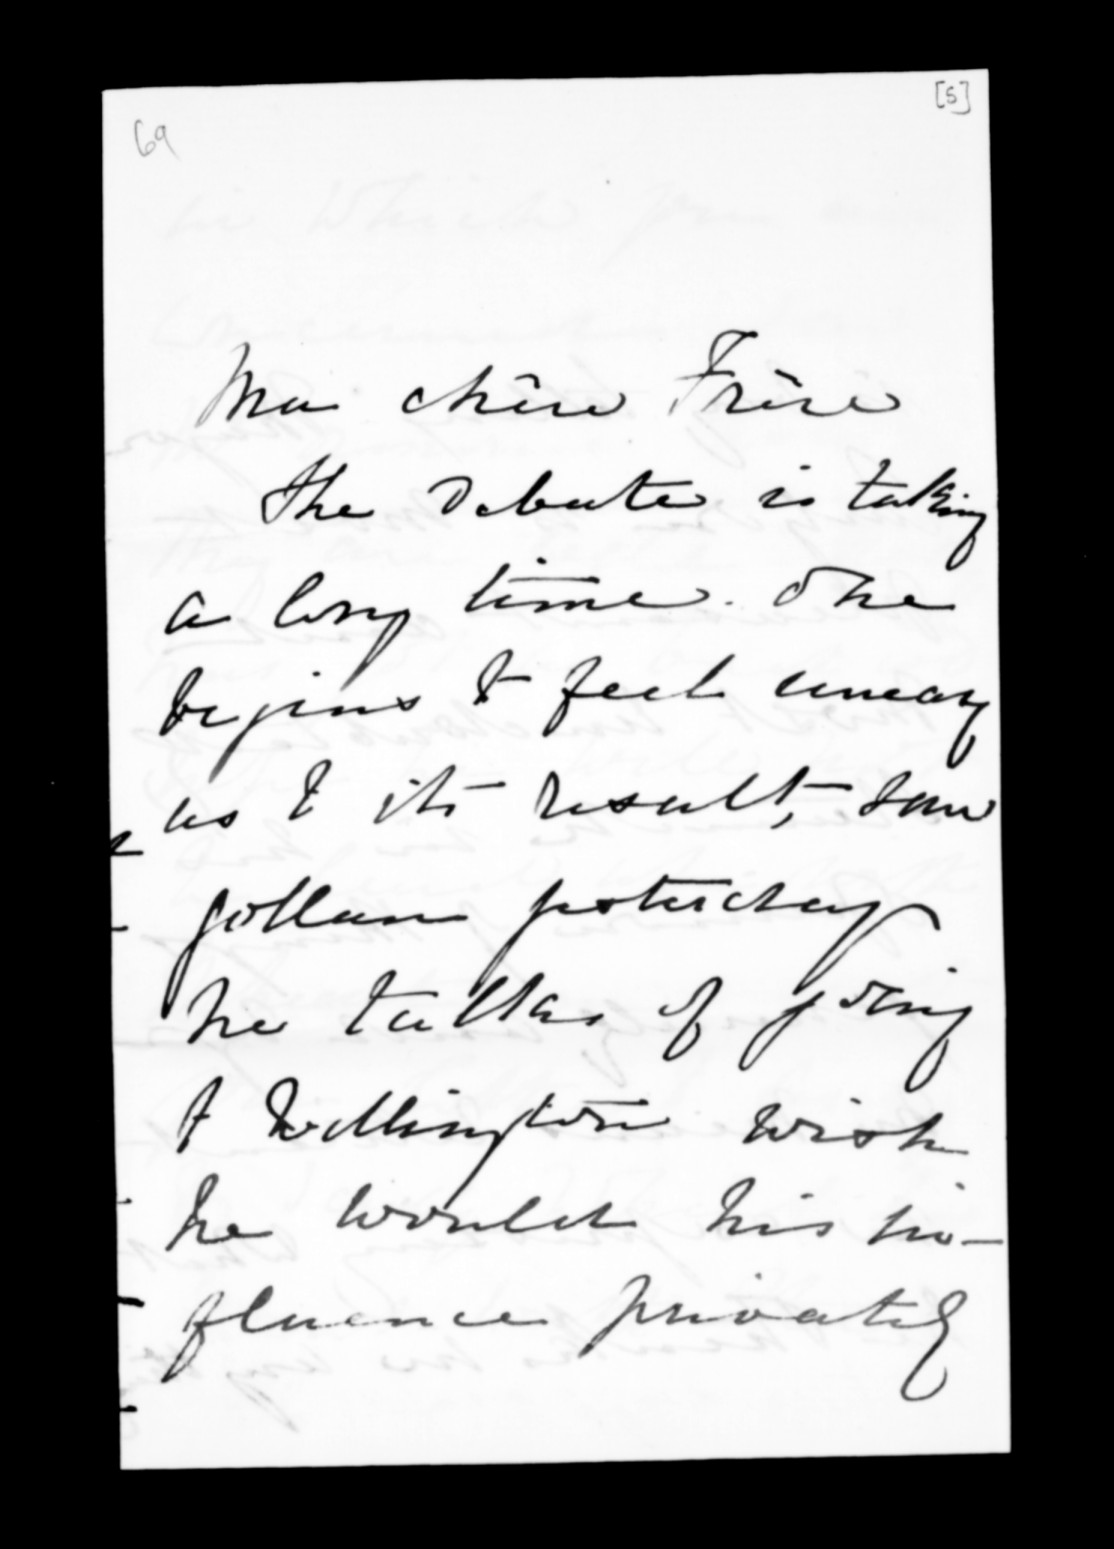 [5]
69
Ma chère Frère
The Debate is taking
a long time. One
begins to feel uneasy
as to its result, saw
Gollan yesterday
he talks of going
to Wellington wish
he would his in-
fluence privately